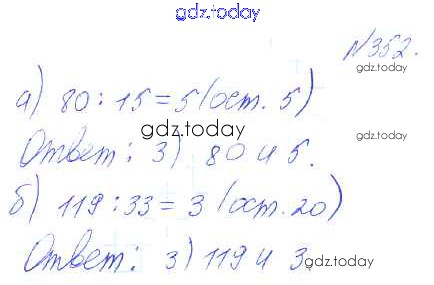 gdz.today
№352.
gdz.today
а) 80 : 15 = 5 (ост. 5)
gdz.today
Ответ: 3) 80 и 5.
б) 119 : 33 = 3 (ост. 20)
Ответ: 3) 119 и 3.
gdz.today